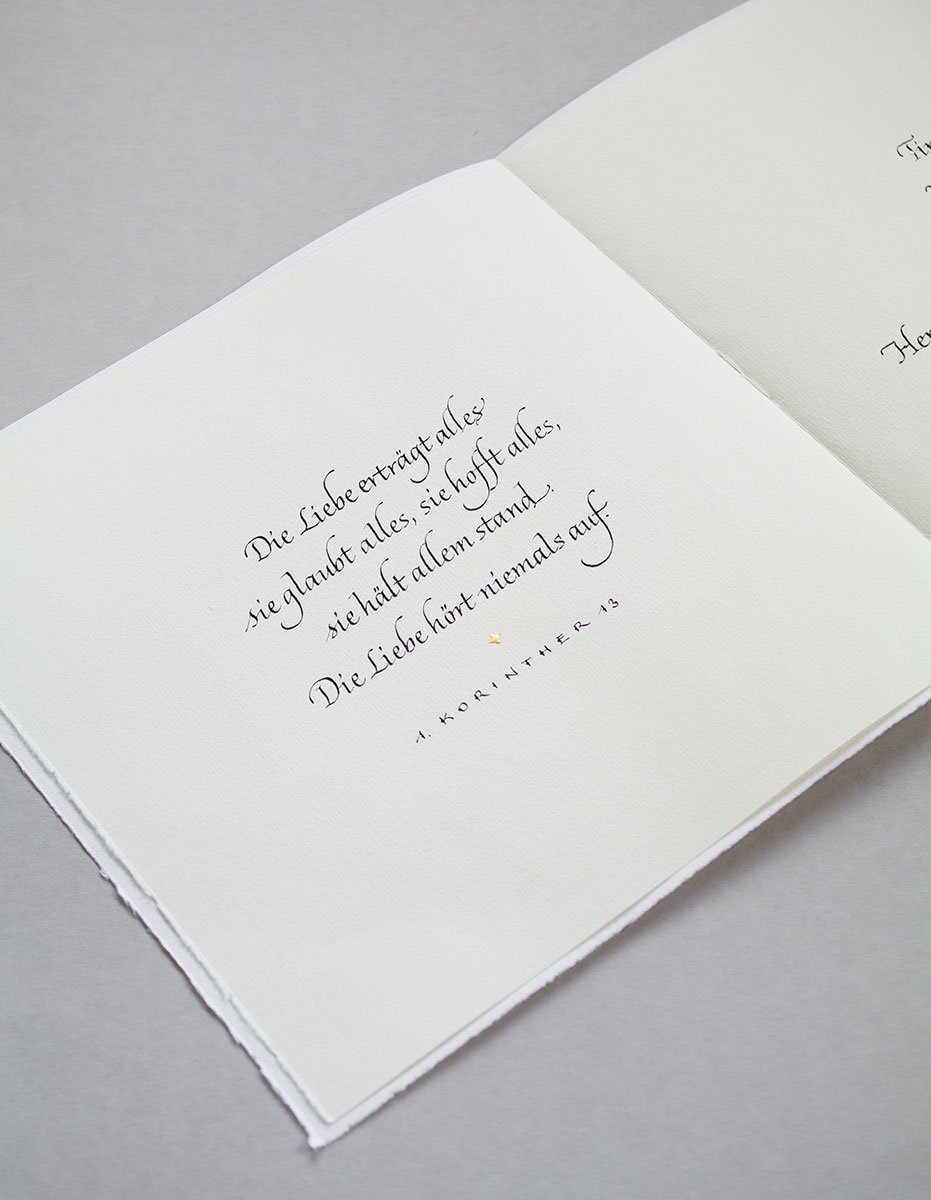 Die Liebe erträgt alles
sie glaubt alles, sie hofft alles,
sie hält allem stand.
Die Liebe hört niemals auf.
1. KORINTHER 13